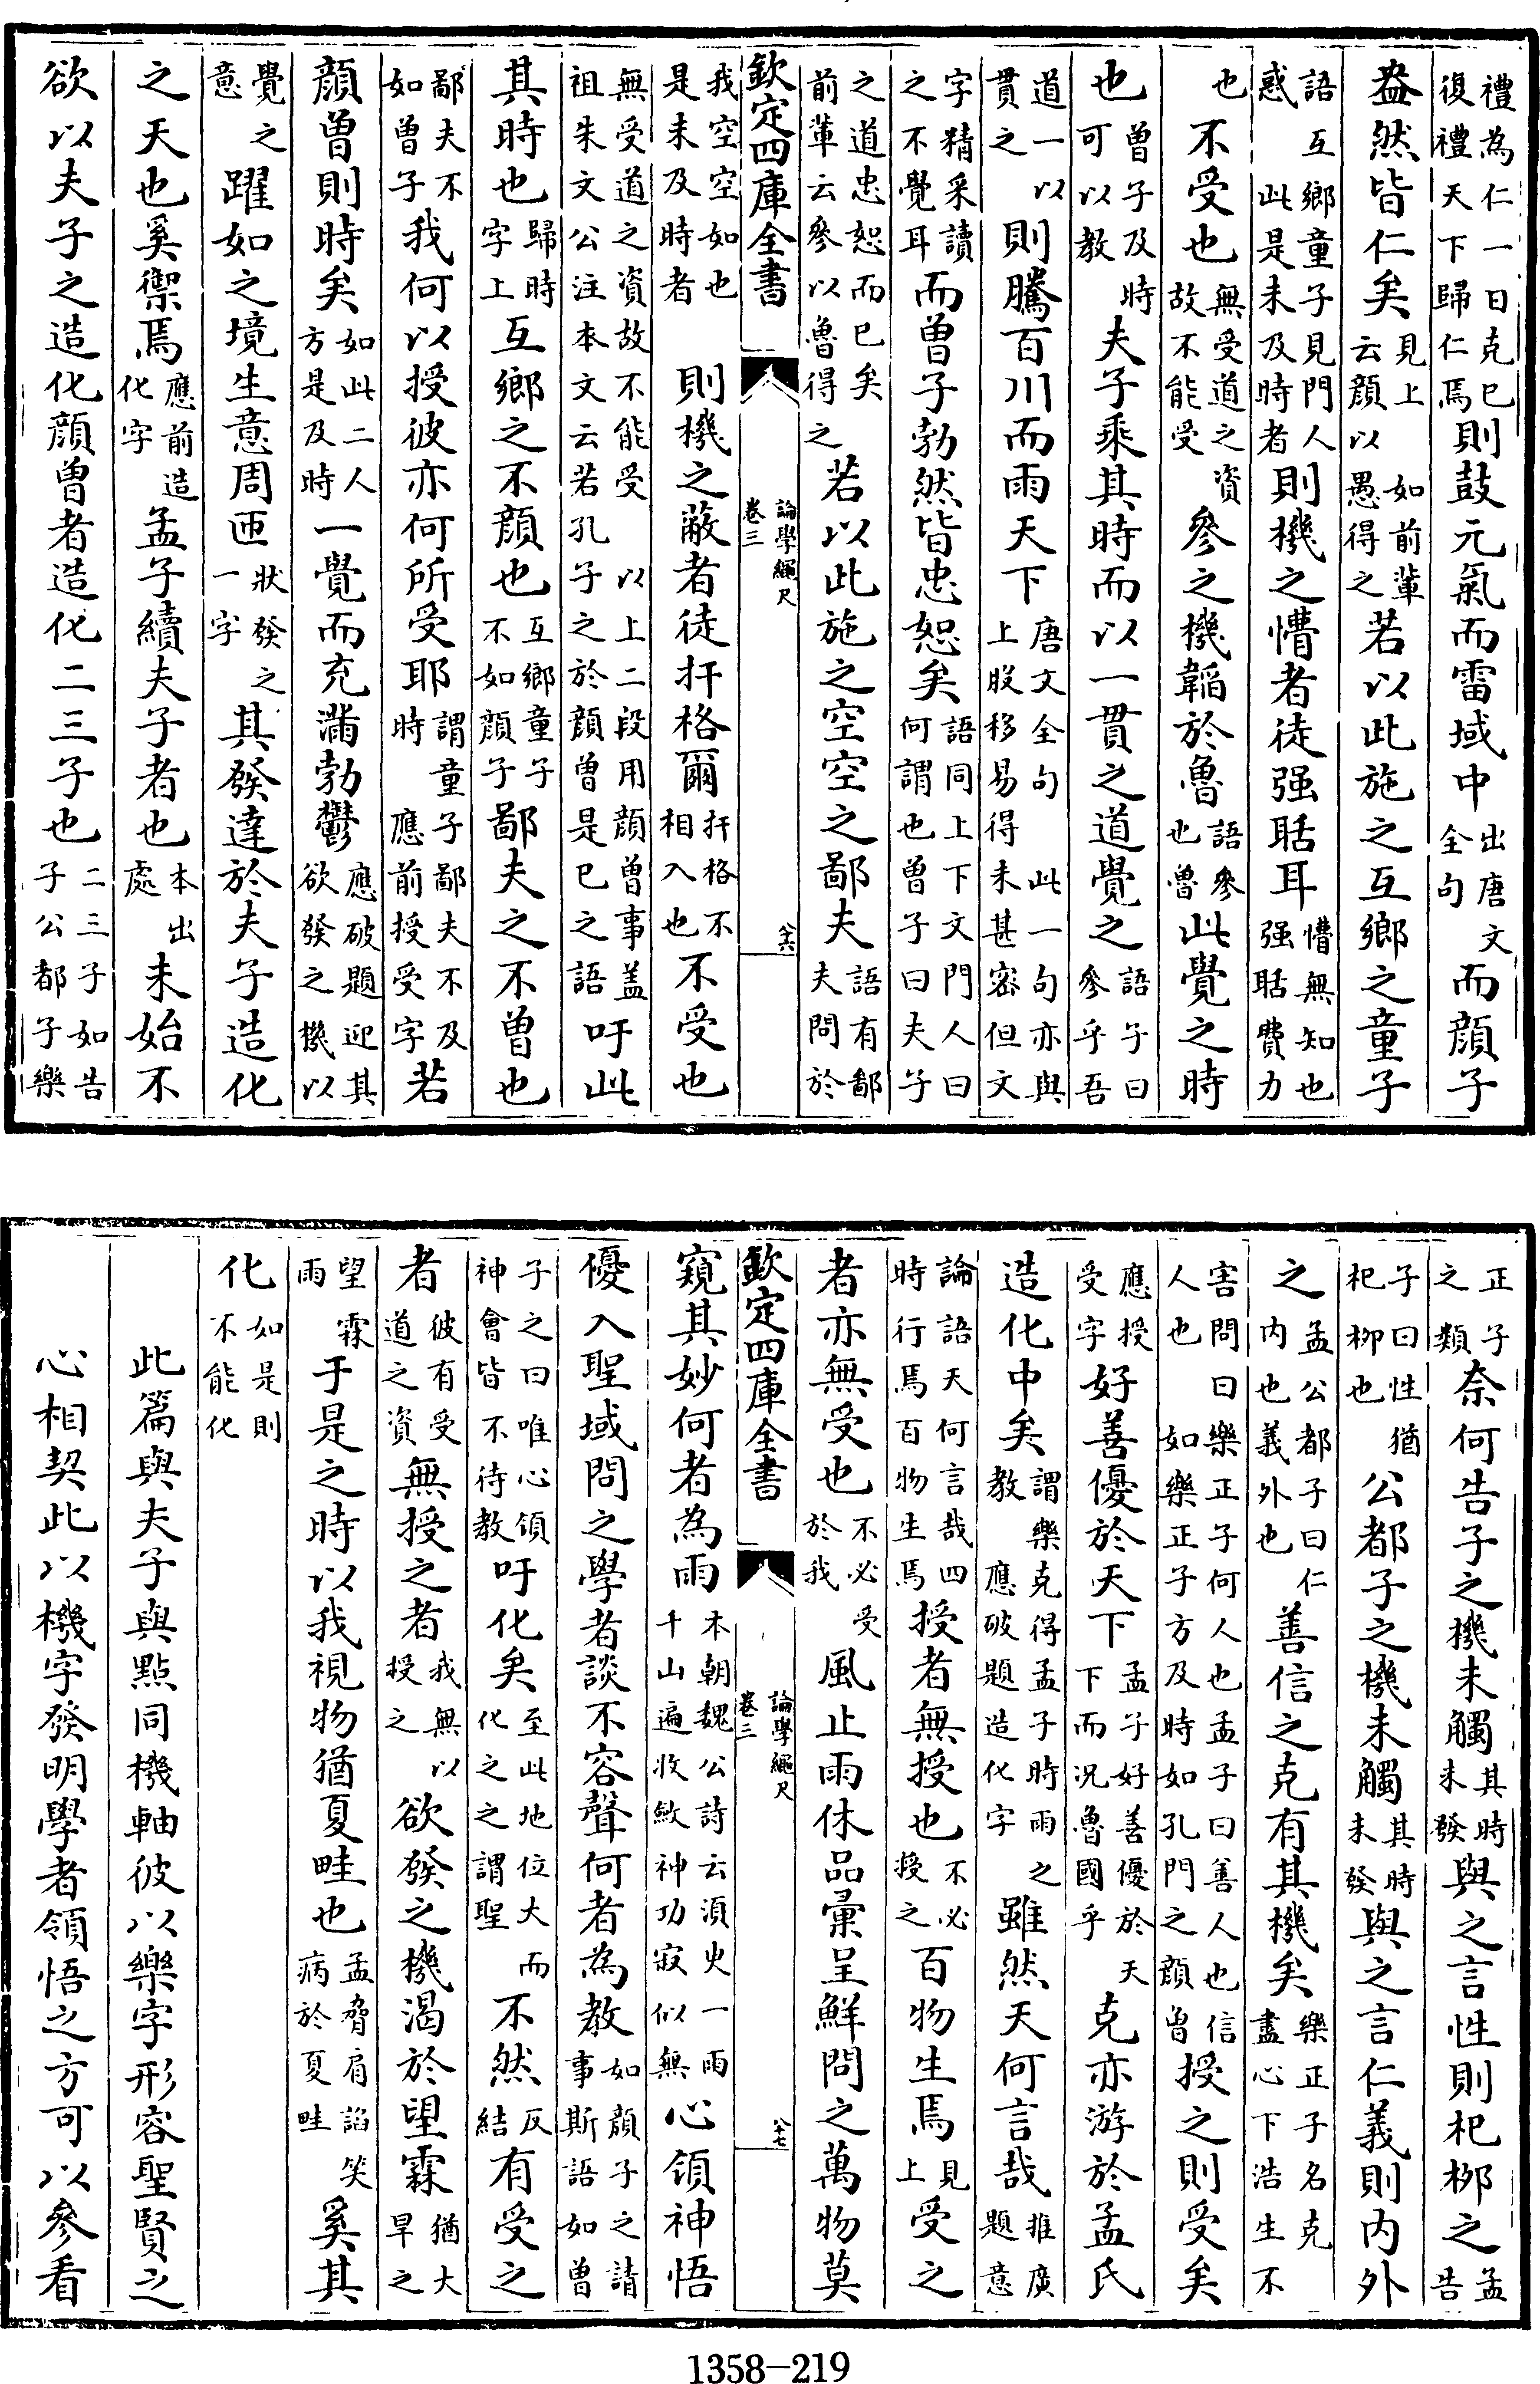 禮為仁一日克己復禮天下歸仁焉則鼓元氣而雷域中出唐文全句而顔子
盎然皆仁矣見上如前輩云顔以愚得之若以此施之互鄉之童子
語互鄉童子見門人惑此是未及時者則機之懵者徒强聒耳懵無知也强聒費力
也不受也無受道之資故不能受參之機韜於魯語參也魯此覺之時
也曽子及時可以教夫子乘其時而以一貫之道覺之語子曰參乎吾
道一以貫之則騰百川而雨天下唐文全句此一句亦與上股移易得未甚密但文
字精采讀之不覺耳而曽子勃然皆忠恕矣語同上下文門人曰何謂也曽子曰夫子
之道忠恕而已矣前輩云參以魯得之若以此施之空空之鄙夫語有鄙夫問於
欽定四庫全書 論學繩尺卷三 八十六
我空空如也是未及時者則機之蔽者徒扞格爾扞格不相入也不受也
無受道之資故不能受以上二段用顔曽事盖祖朱文公注本文云若孔子之於顔曽是已之語吁此
其時也歸時字上互鄉之不顔也互鄉童子不如顔子鄙夫之不曽也
鄙夫不如曽子我何以授彼亦何所受耶謂童子鄙夫不及時應前授受字若
顔曽則時矣如此二人方是及時一覺而充滿勃鬱應破題迎其欲發之機以
覺之意躍如之境生意周匝狀發之一字其發達於夫子造化
之天也奚禦焉應前造化字孟子續夫子者也本出處未始不
欲以夫子之造化顔曽者造化二三子也二三子如告子公都子樂
正子之類奈何告子之機未觸其時未發與之言性則杞栁之孟告
子曰性猶杞栁也公都子之機未觸其時未發與之言仁義則内外
之孟公都子曰仁内也義外也善信之克有其機矣樂正子名克盡心下浩生不
害問曰樂正子何人也孟子曰善人也信人也如樂正子方及時如孔門之顔曽授之則受矣
應授受字好善優於天下孟子好善優於天下而况魯國乎克亦游於孟氏
造化中矣謂樂克得孟子時雨之教應破題造化字雖然天何言哉推廣題意
論語天何言哉四時行焉百物生焉授者無授也不必授之百物生焉見上受之
者亦無受也不必受於我風止雨休品彚呈鮮問之萬物莫
欽定四庫全書 論學繩尺卷三 八十七
窺其妙何者為雨本朝魏公詩云湏臾一雨千山遍收斂神功寂似無心領神悟
優入聖域問之學者談不容聲何者為教如顔子之請事斯語如曽
子之曰唯心領神會皆不待教吁化矣至此地位大而化之之謂聖不然反結有受之
者彼有受道之資無授之者我無以授之欲發之機渴於望霖猶大旱之
望霖雨于是之時以我視物猶夏畦也孟脅肩諂笑病於夏畦奚其
化如是則不能化
此篇與夫子與點同機軸彼以樂字形容聖賢之
心相契此以機字發明學者領悟之方可以參看
1358-219